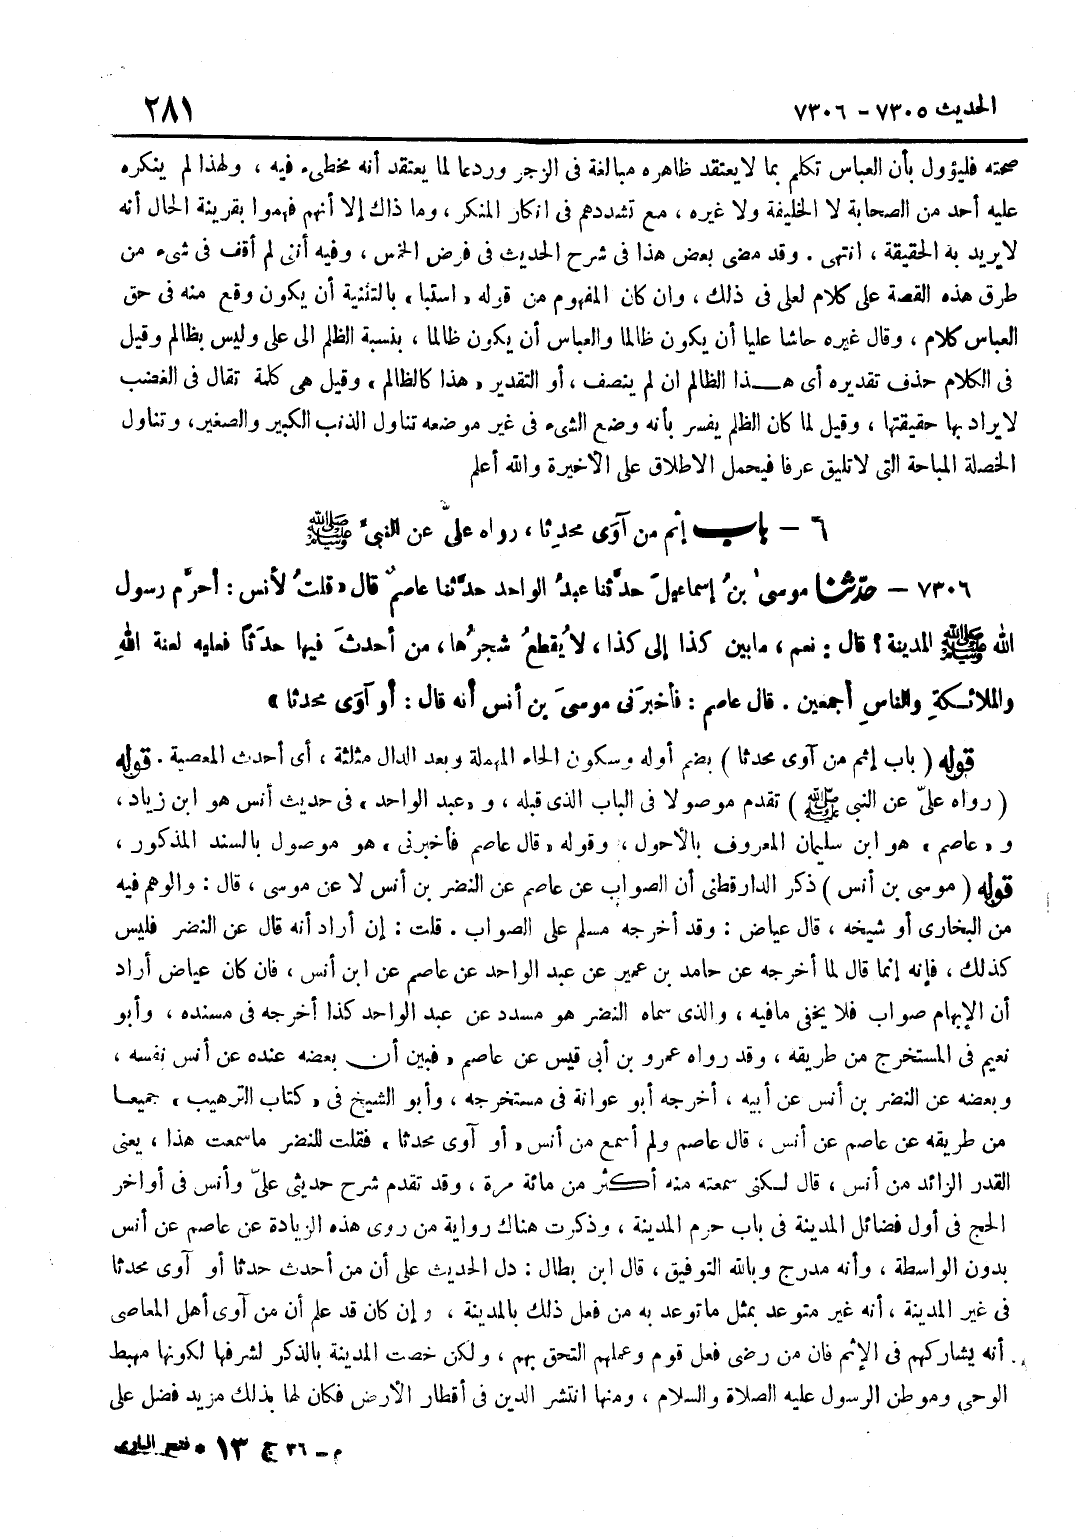 الحديث ٧٣٠٥ - ٧٣٠٦
٢٨١
صحته فليؤول بأن العباس تكلم بما لايعتقد ظاهره مبالغة فى الزجر وردعا لما يعتقد أنه مخطىء فيه ، ولهذا لم ينكره
عليه أحد من الصحابة لا الخليفة ولا غيره ، مع تشددهم فى انكار المنكر ، وما ذاك إلا أنهم فهموا بقرينة الحال أنه
لايريد به الحقيقة ، انتهى . وقد مضى بعض هذا فى شرح الحديث فى فرض الخمس ، وفيه أننى لم أقف فى شىء من
طرق هذه القصة على كلام لعلى فى ذلك ، وان كان المفهوم من قوله « استبا » بالتثنية أن يكون وقع منه فى حق
العباس كلام ، وقال غيره حاشا عليا أن يكون ظالما والعباس أن يكون ظالما ، بنسبة الظلم الى على وليس بظالم وقيل
فى الكلام حذف تقديره أى هـذا الظالم ان لم ينصف ، أو التقدير « هذا كالظالم » وقيل هى كلمة تقال فى الغضب
لايراد بها حقيقتها ، وقيل لما كان الظلم يفسر بأنه وضع الشىء فى غير موضعه تناول الذنب الكبير والصغير ، وتناول
الخصلة المباحة التى لاتليق عرفا فيحمل الاطلاق على الأخيرة والله أعلم
٦ - باب إثم من آوَى محدِثا ، رواه علىّ عن النبىّ ﷺ
٧٣٠٦ - حدّثنا موسىٰ بنُ إسماعيلَ حدَّثنا عبدُ الواحد حدَّثنا عاصمٌ قال « قلتُ لأنس : أحرَّم رسول
الله ﷺ المدينة ؟ قال : نعم ، مابين كذا إلى كذا ، لا يُقطعُ شجرُها ، من أحدثَ فيها حدَثاً فعليه لعنة اللهِ
والملائـكةِ والناسِ أجمعين . قال عاصم : فأخبرَنى موسىَ بن أنس أنه قال : أو آوَى محدثا »
قوله ( باب إثم من آوى محدثا ) بضم أوله وسكون الحاء المهملة وبعد الدال مثلثة ، أى أحدث المعصية . قوله
( رواه علىّ عن النبى ﷺ ) تقدم موصولا فى الباب الذى قبله ، و « عبد الواحد » فى حديث أنس هو ابن زياد ،
و « عاصم » هو ابن سليمان المعروف بالأحول ، وقوله « قال عاصم فأخبرنى » هو موصول بالسند المذكور ،
قوله ( موسى بن أنس ) ذكر الدارقطنى أن الصواب عن عاصم عن النضر بن أنس لا عن موسى ، قال : والوهم فيه
من البخارى أو شيخه ، قال عياض : وقد أخرجه مسلم على الصواب . قلت : إن أراد أنه قال عن النضر فليس
كذلك ، فإنه إنما قال لما أخرجه عن حامد بن عمير عن عبد الواحد عن عاصم عن ابن أنس ، فان كان عياض أراد
أن الإبهام صواب فلا يخفى مافيه ، والذى سماه النضر هو مسدد عن عبد الواحد كذا أخرجه فى مسنده ، وأبو
نعيم فى المستخرج من طريقه ، وقد رواه عمرو بن أبى قيس عن عاصم « فبين أن بعضه عنده عن أنس نفسه ،
وبعضه عن النضر بن أنس عن أبيه ، أخرجه أبو عوانة فى مستخرجه ، وأبو الشيخ فى « كتاب الترهيب » جميعـا
من طريقه عن عاصم عن أنس ، قال عاصم ولم أسمع من أنس « أو آوى محدثا » فقلت للنضر ماسمعت هذا ، يعنى
القدر الزائد من أنس ، قال لـكنى سمعته منه أكثر من مائة مرة ، وقد تقدم شرح حديثى علىّ وأنس فى أواخر
الحج فى أول فضائل المدينة فى باب حرم المدينة ، وذكرت هناك رواية من روى هذه الزيادة عن عاصم عن أنس
بدون الواسطة ، وأنه مدرج وبالله التوفيق ، قال ابن بطال : دل الحديث على أن من أحدث حدثا أو آوى محدثا
فى غير المدينة ، أنه غير متوعد بمثل ماتوعد به من فعل ذلك بالمدينة ، وإن كان قد علم أن من آوى أهل المعاصى
أنه يشاركهم فى الإثم فان من رضى فعل قوم وعملهم التحق بهم ، ولكن خصت المدينة بالذكر لشرفها لكونها مهبط
الوحى وموطن الرسول عليه الصلاة والسلام ، ومنها انتشر الدين فى أقطار الأرض فكان لها بذلك مزيد فضل على
م - ٣٦ ج ١٣ * فتح البارى